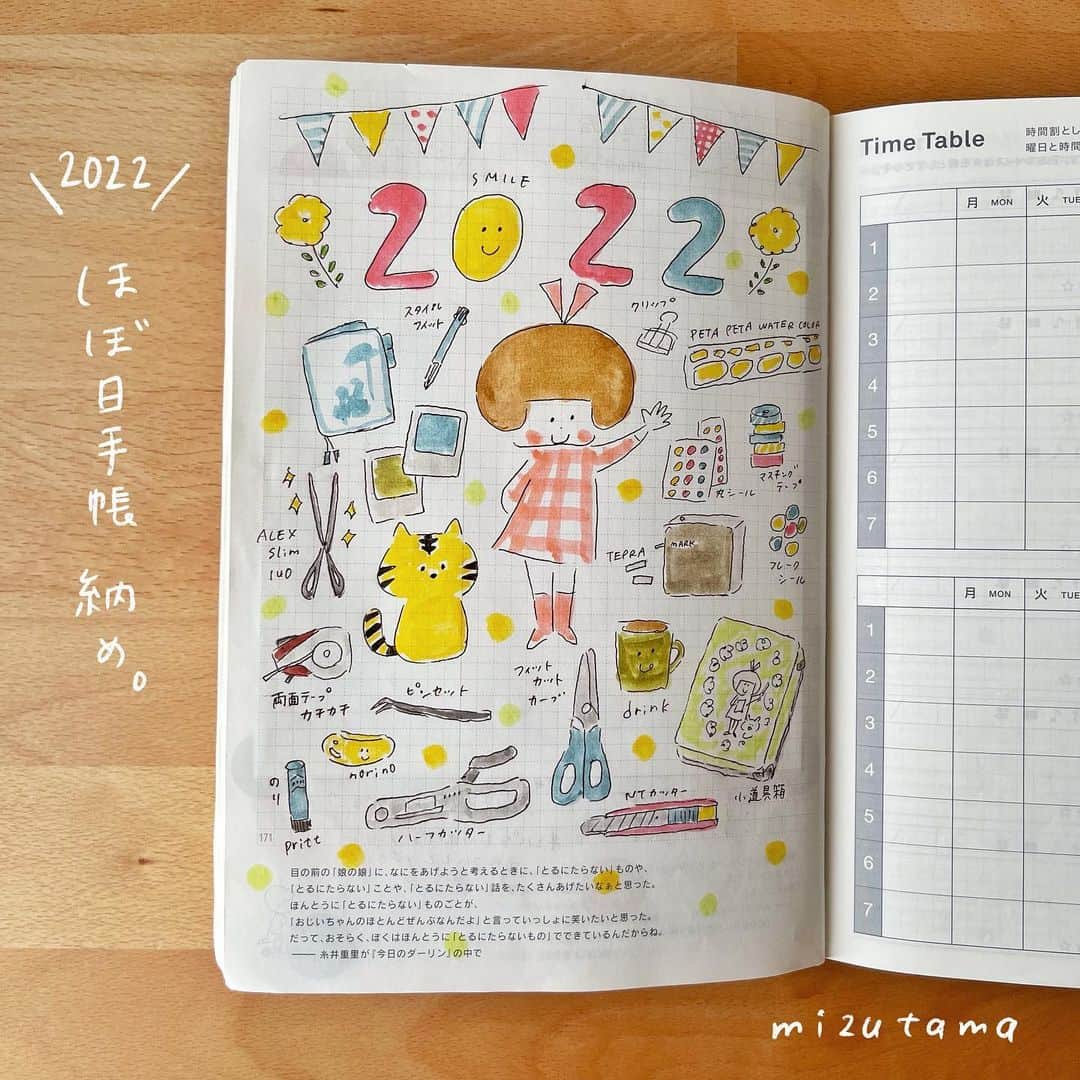 2022
ほぼ日手帳
納め。
SMILE
2022
スタイル
フィット
クリップ
PETA PETA WATER COLOR
丸シール
マスキング
テープ
ALEX
Slim
TEPRA
MARK
フレーク
シール
両面テープ
カチカチ
ピンセット
フィット
カット
カーブ
drink
小道具箱
norino
のり
pritt
ハーフカッター
NTカッター
171
目の前の「娘の娘」に、なにをあげようと考えるときに、「とるにたらない」ものや、
「とるにたらない」ことや、「とるにたらない」話を、たくさんあげたいなぁと思った。
ほんとうに「とるにたらない」ものごとが、
「おじいちゃんのほとんどぜんぶなんだよ」と言っていっしょに笑いたいと思った。
だって、おそらく、ぼくはほんとうに「とるにたらないもの」でできているんだからね。
—— 糸井重里が『今日のダーリン』の中で
Time Table
時間割とし
曜日と時間
月 MON 火 TUE
1
2
3
4
5
6
7
月 MON 火 TUE
1
2
3
4
5
6
7
mizutama